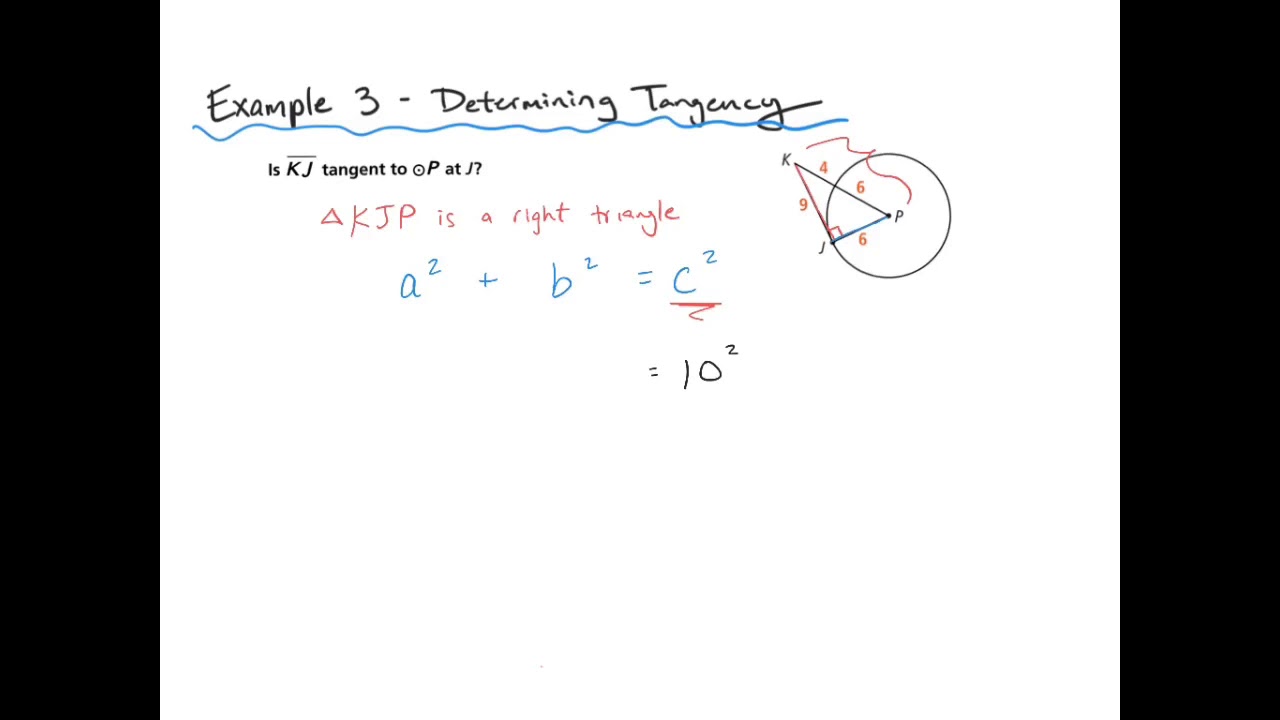 Example 3 - Determining Tangency
Is KJ tangent to ⊙P at J?
△KJP is a right triangle
a² + b² = c²
= 10²
K
4
6
9
P
J
6